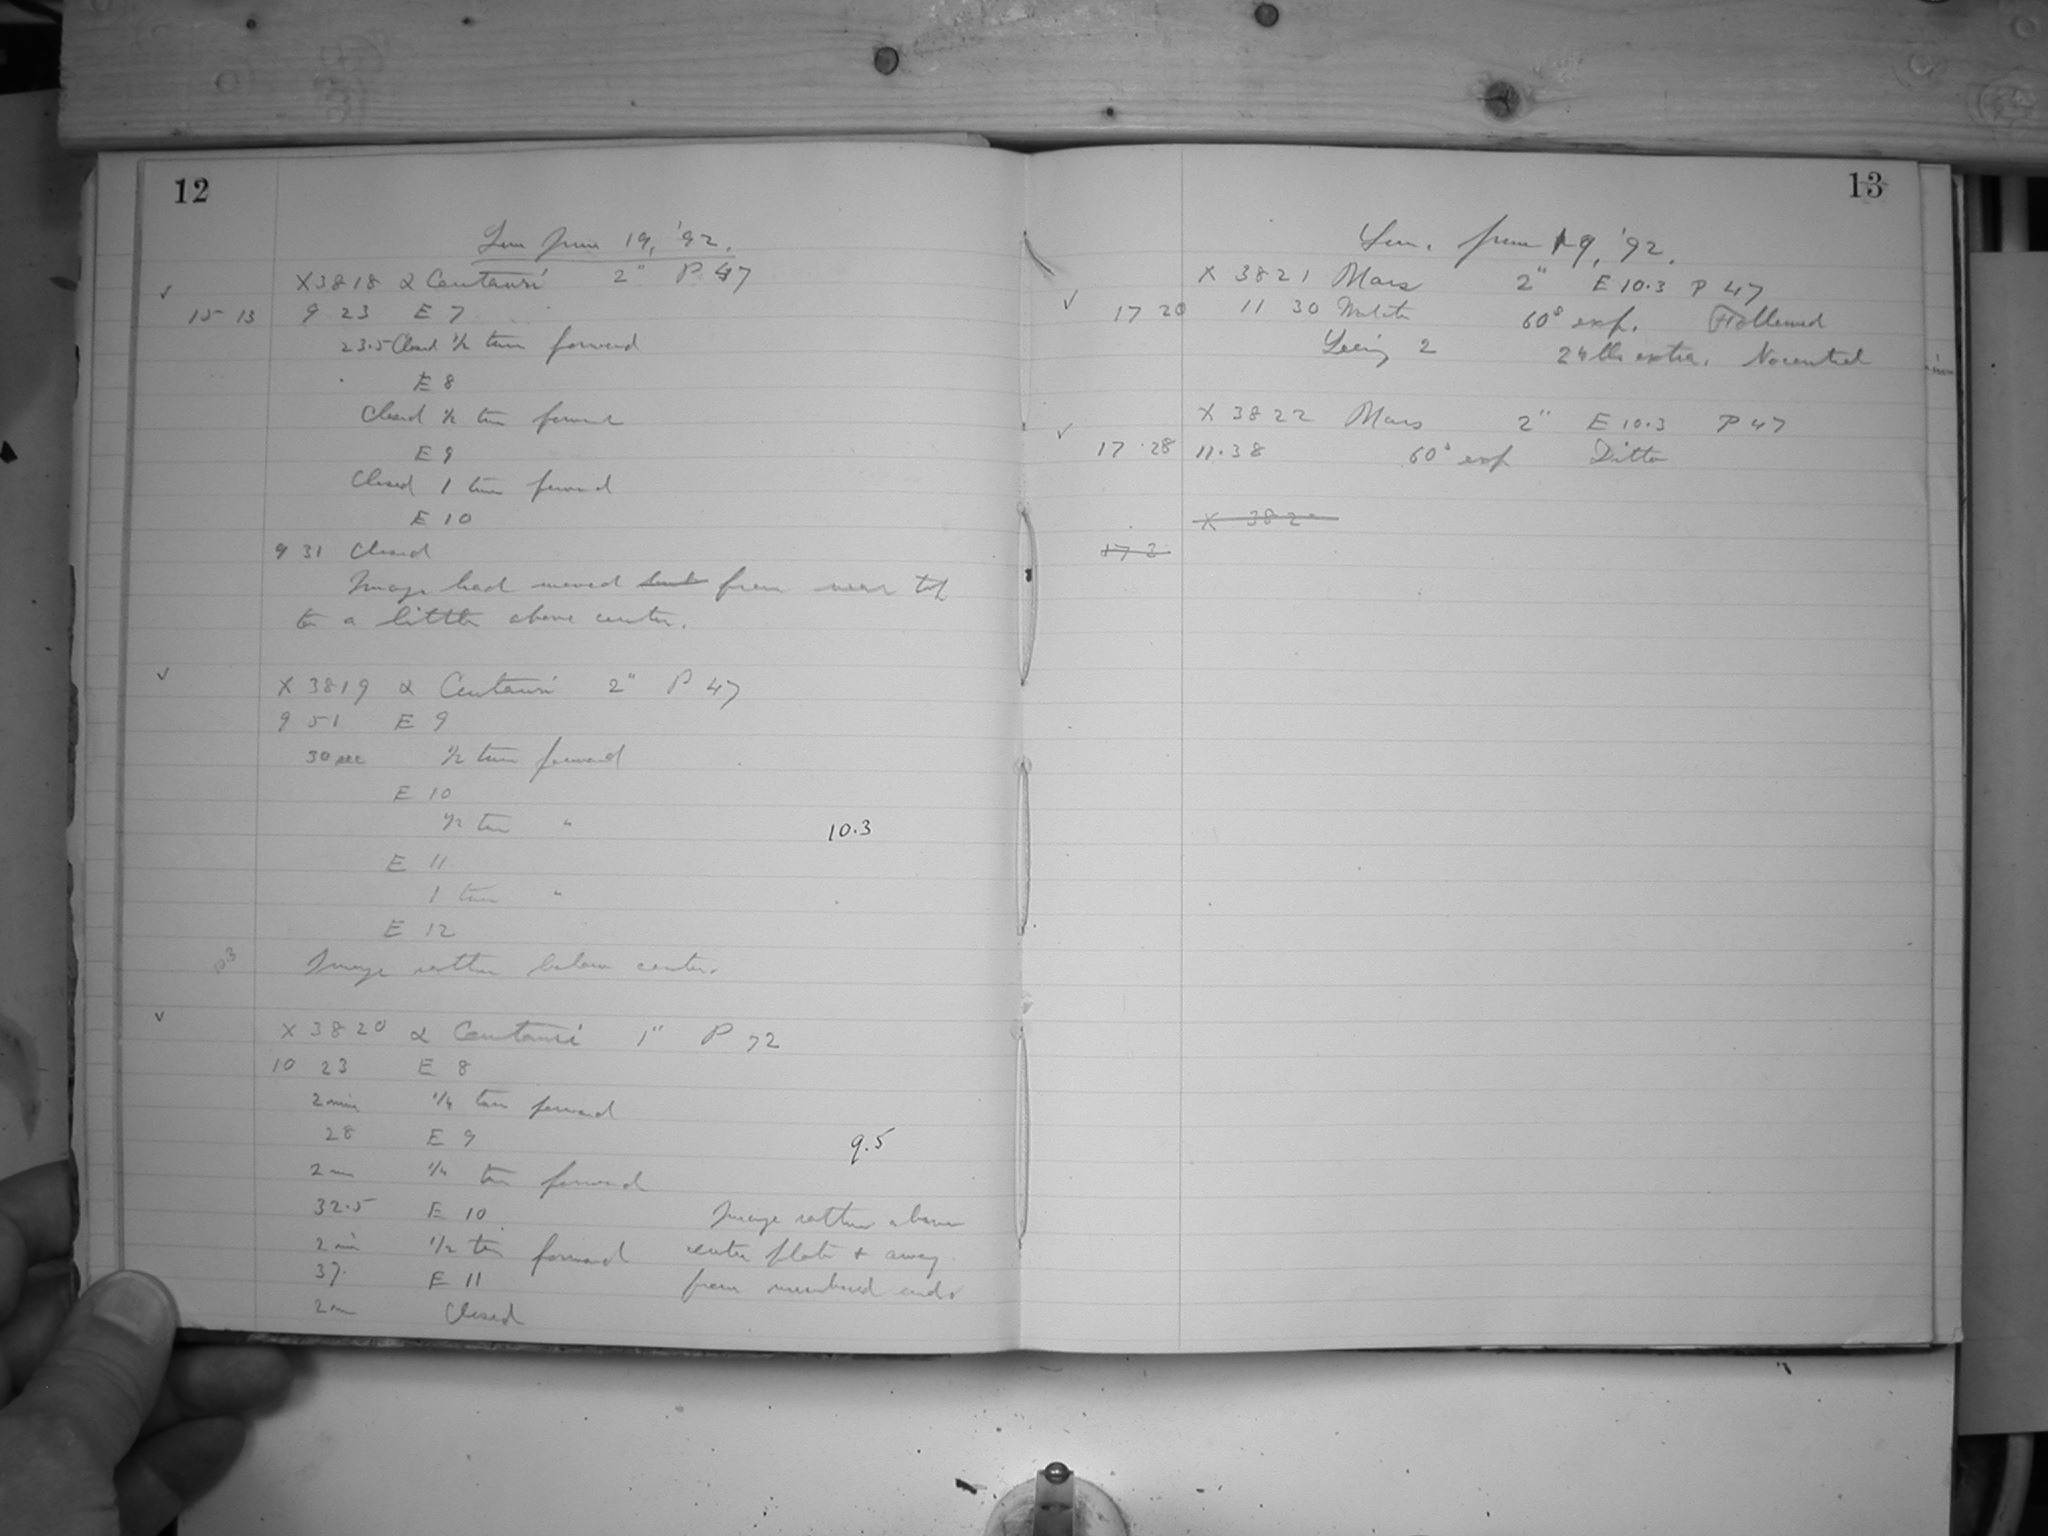 12
Sun June 19, '92.
X3818 α Centauri 2" P 47
✓
15 13 9 23 E 7
23.5 Closed 1/2 turn forward
E 8
Closed 1/2 turn forward
E 9
Closed 1 turn forward
E 10
9 31 Closed
Image had moved from near top
to a little above center.
✓
X 3819 α Centauri 2" P 47
9 51 E 9
30 sec 1/2 turn forward
E 10
1/2 turn "
10.3
E 11
1 turn "
E 12
10.3
Image rather below center.
✓
X 3820 α Centauri 1" P 72
10 23 E 8
2 min 1/4 turn forward
28 E 9
9.5
2 m 1/4 turn forward
32.5 E 10 Image rather above
2 min 1/2 turn forward center plate & away
37. E 11 from numbered end.
2 m Closed
13
Sun. June 19, '92.
X 3821 Mars 2" E 10.3 P 47
✓
17 20 11 30 60s exp. Followed
Seeing 2 24 lbs extra. No control
X 3822 Mars 2" E 10.3 P 47
✓
17.28 11.38 60s exp Ditto
X 382
17 3